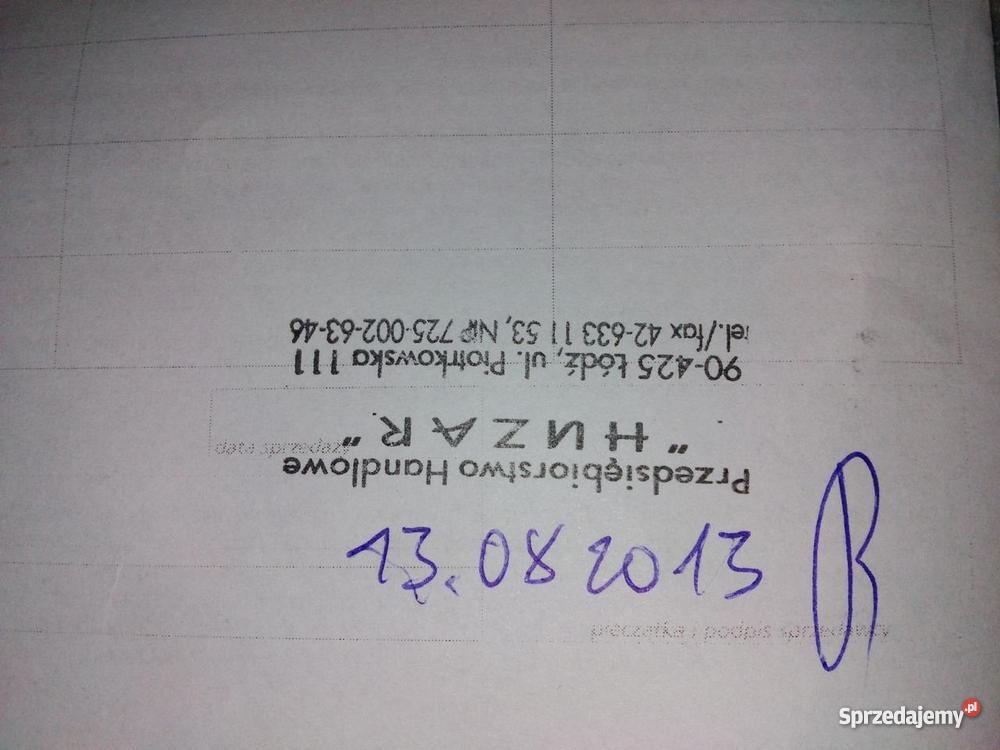 Przedsiębiorstwo Handlowe
"HUZAR"
90-425 Łódź, ul. Piotrkowska 111
tel./fax 42-633 11 53, NIP 725-002-63-46
data sprzedaży
13.08 2013
pieczątka i podpis sprzedawcy
Sprzedajemy.pl